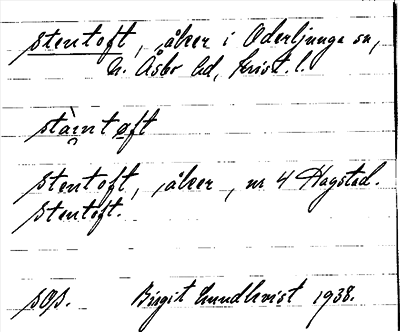 stentoft, åker i Oderljunga sn,
N. Åsbo hd, Krist. l.
stæ̀nt ǫft
stentoft, åker, nr 4 Hagstad.
Stentoft.
sgs. Birgit Lundkvist 1938.